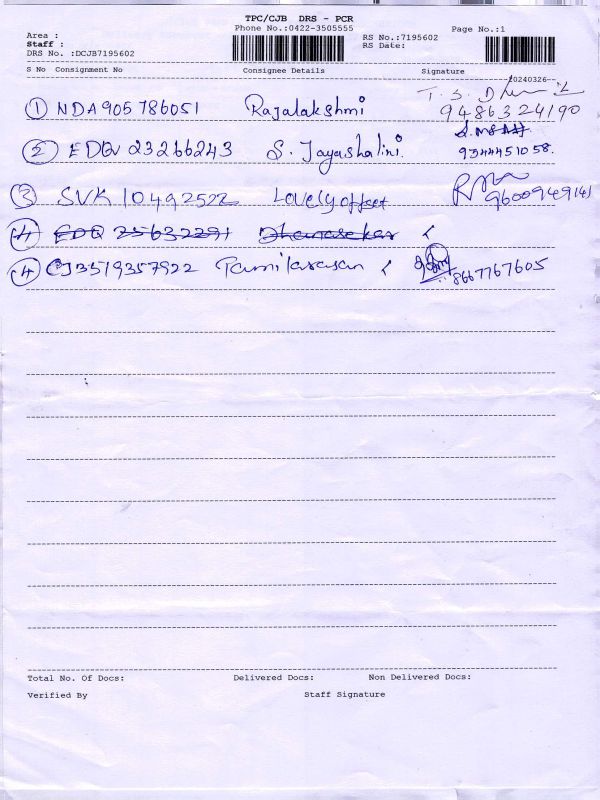 TPC/CJB DRS - PCR
Phone No.:0422-3505555
Page No.:1
Area :
RS No.:7195602
Staff :
RS Date:
DRS No. :DCJB7195602
S No Consignment No Consignee Details Signature
20240326
① NDA905786051 Rajalakshmi T. S. 9486324190
② EDQ 23266243 S. Jayashalini. 9344451058.
③ SVK 10492522 Lovely offset 9600949141
④ EDQ 25632291 Dhanasekar
④ CJ3519357922 Tamilarasan 8667767605
Total No. Of Docs: Delivered Docs: Non Delivered Docs:
Verified By Staff Signature